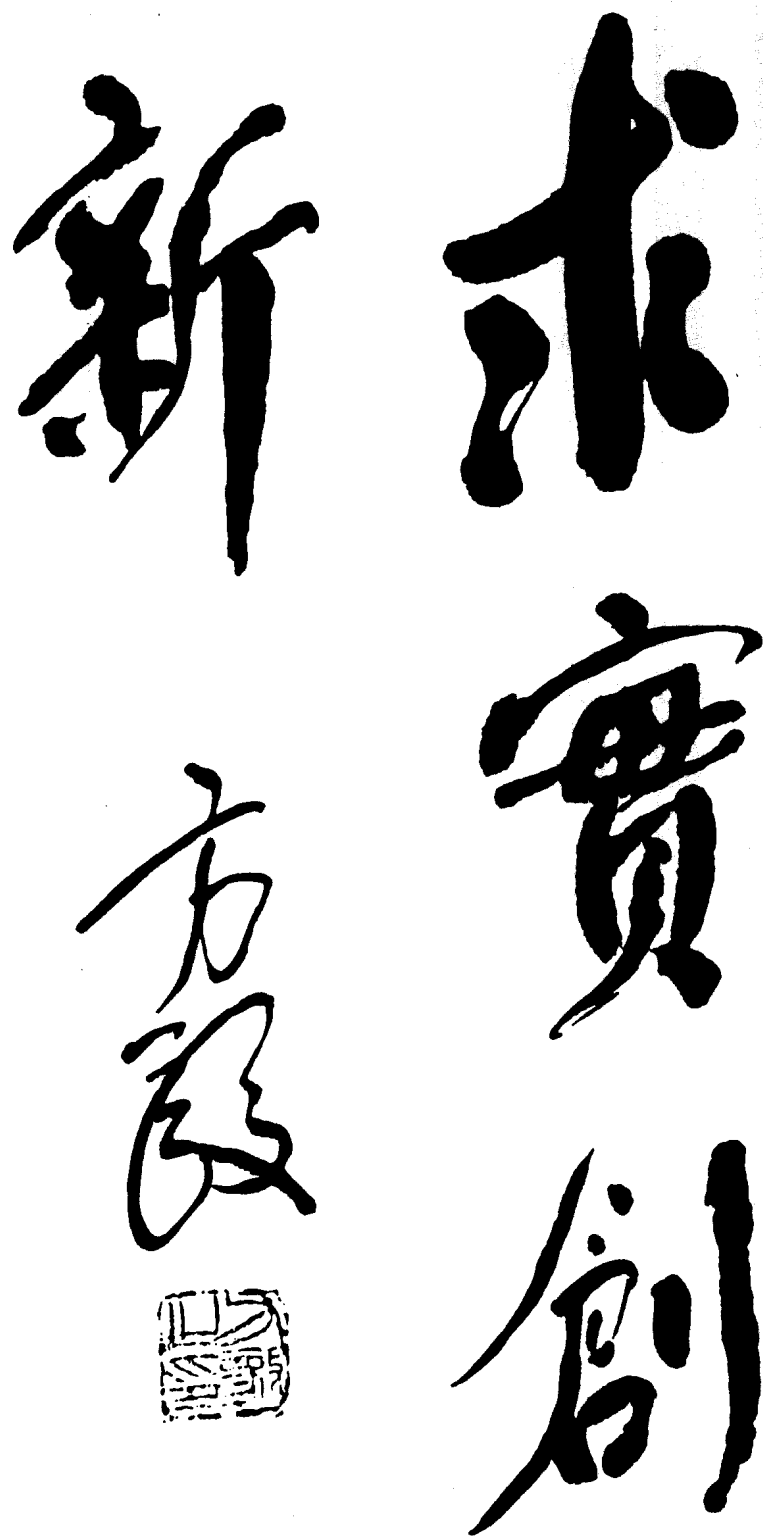 求實創
新
方毅